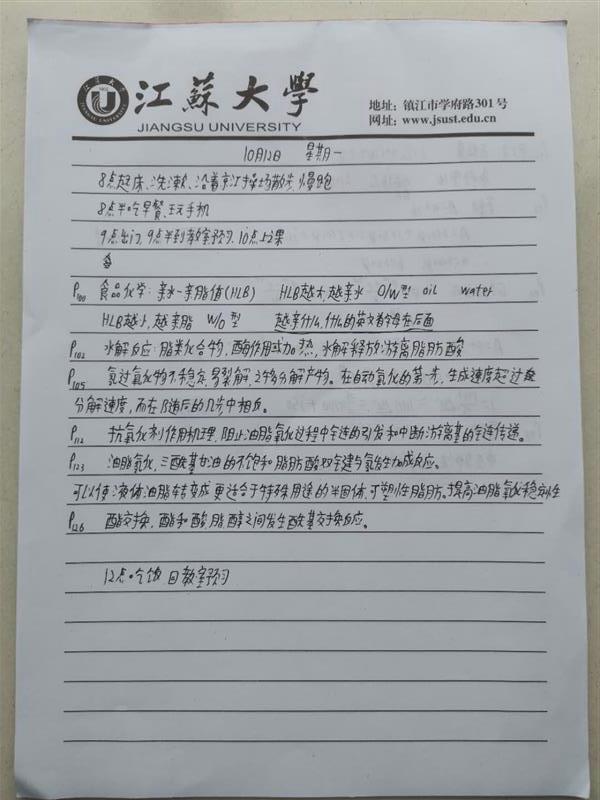 江苏大学
JIANGSU UNIVERSITY
地址：镇江市学府路301号
网址：www.jsust.edu.cn
10月12日 星期一
8点起床、洗漱、沿着京江操场散步、慢跑
8点半吃早餐、玩手机
9点出门，9点半到教室预习，10点上课
P100 食品化学：亲水-亲脂值(HLB) HLB越大,越亲水 O/W型 oil water
HLB越小,越亲脂 W/O型 越亲什么,什么的英文首字母在后面
P102 水解反应：脂类化合物,酶作用或加热,水解释放游离脂肪酸
P105 氢过氧化物不稳定,易裂解,2分解产物。在自动氧化的第一步,生成速度超过
分解速度,而在随后的几步中相反。
P112 抗氧化剂作用机理,阻止油脂氧化过程中链的引发和中断游离基的链传递。
P123 油脂氢化,三酰基甘油的不饱和脂肪酸双键与氢发生加成反应。
可以使液体油脂转变成更适合于特殊用途的半固体、可塑性脂肪。提高油脂氧化稳定性
P126 酯交换,酯和酸、脂、醇之间发生酰基交换反应。
12点吃饭 回教室预习